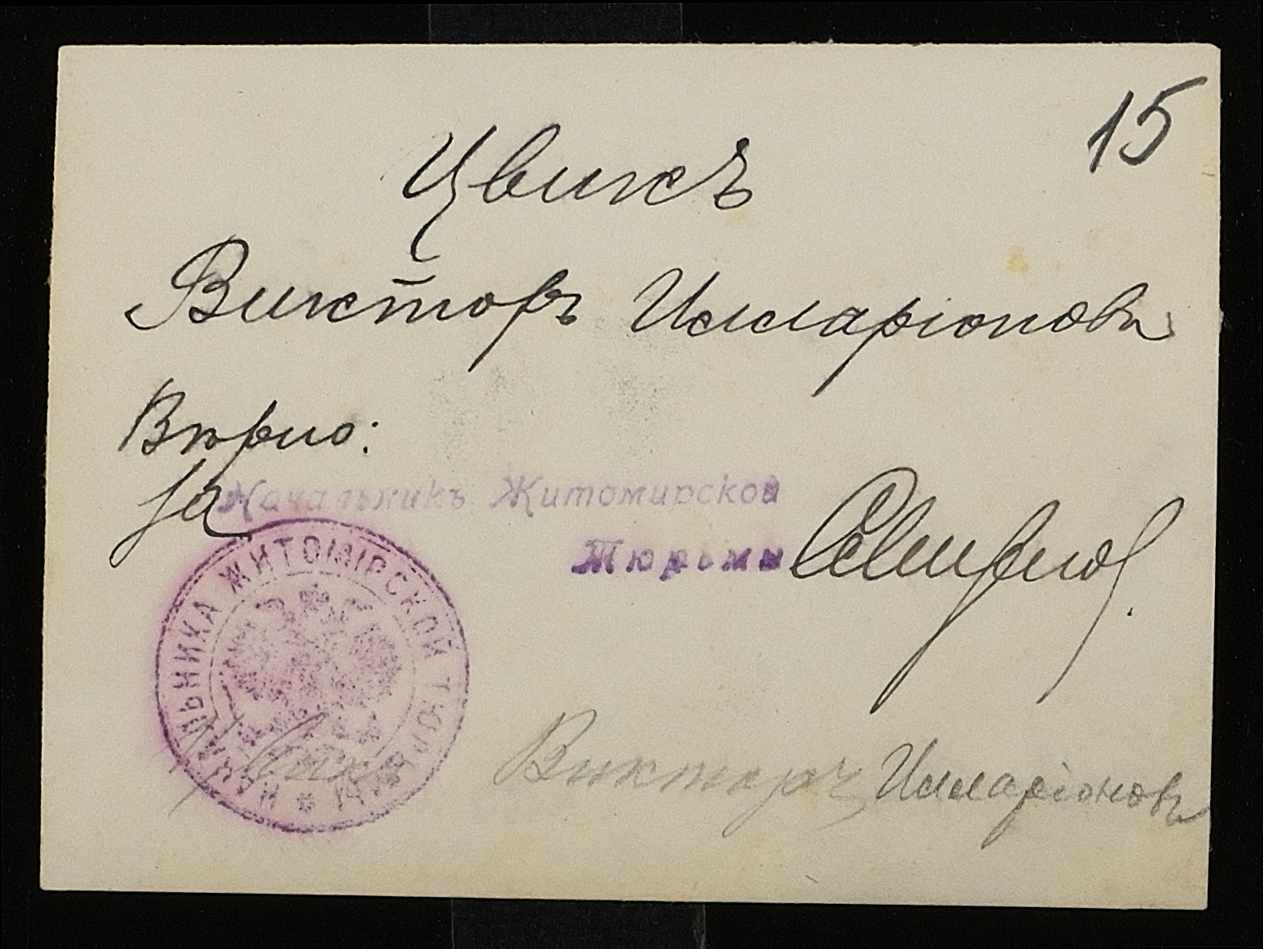 15
Цвикъ
Викторъ Илларіоновъ
Вѣрно:
За Начальникъ Житомирской
Тюрьмы
НАЧАЛЬНИКА ЖИТОМІРСКОЙ ТЮРЬМЫ
Цвикъ Викторъ Илларіоновъ